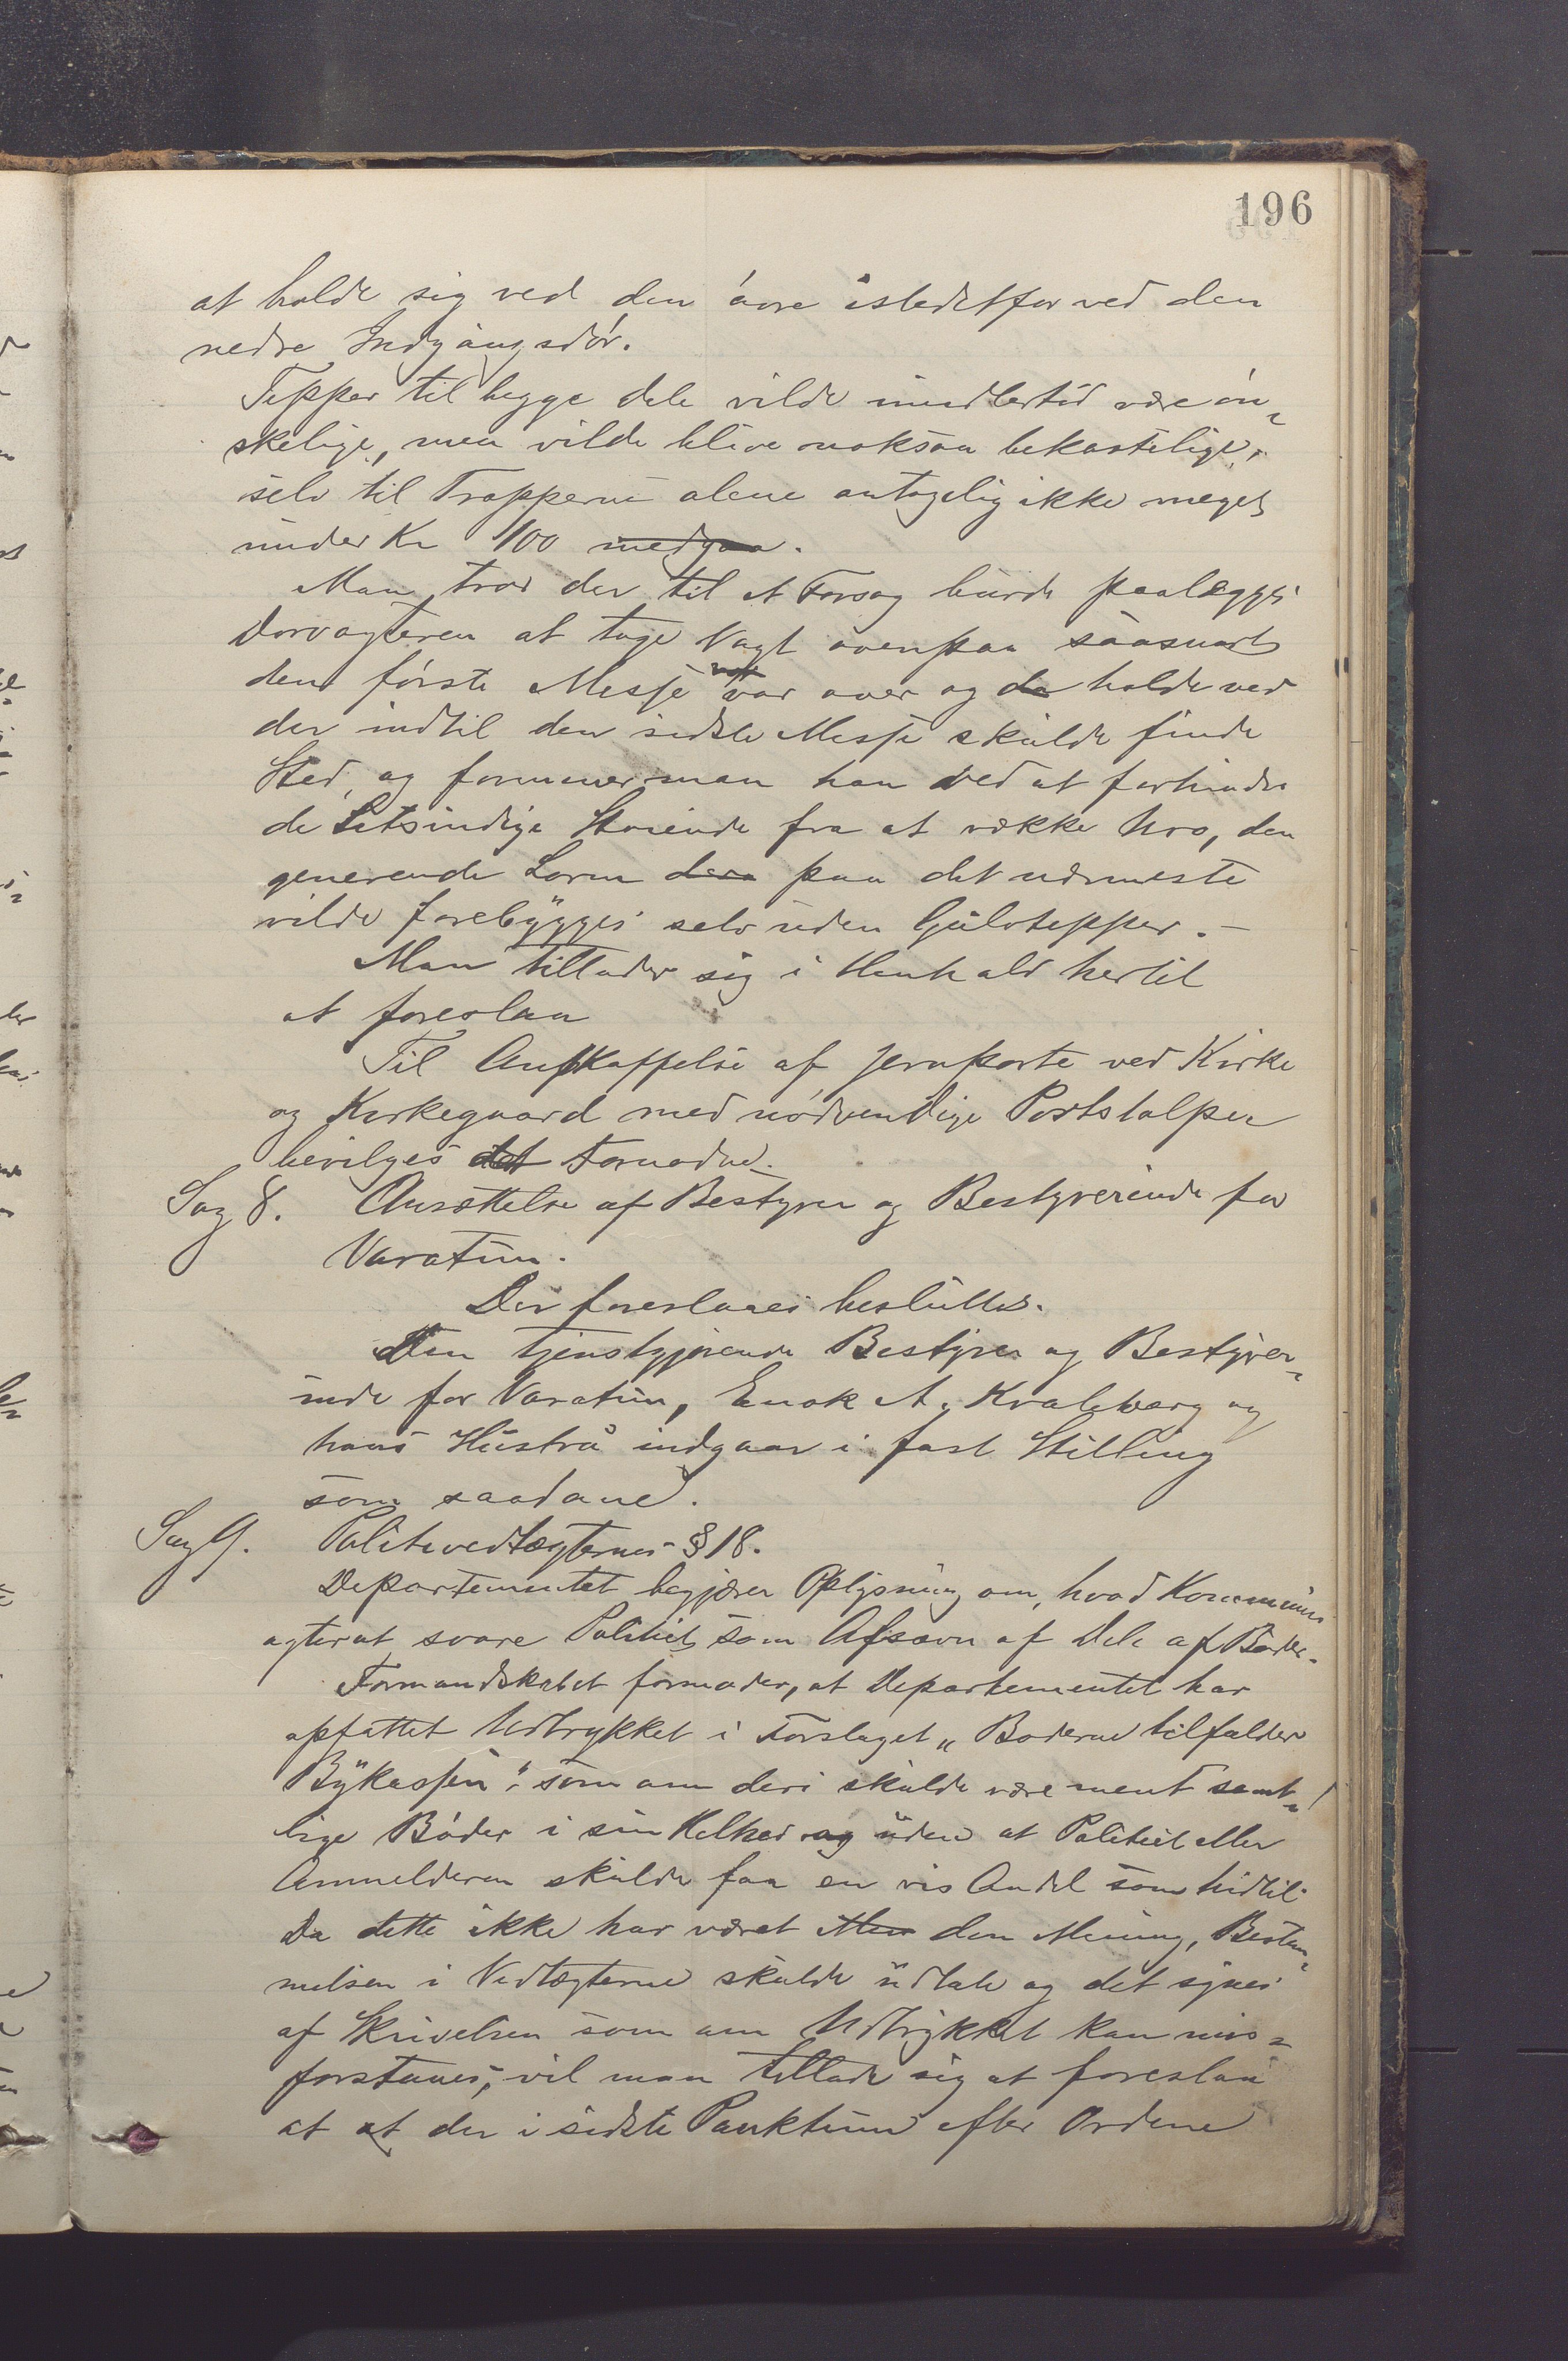 196
at holde sig ved den øvre istedetfor ved den
nedre Indgangsdør.
Tepper til begge dele vilde imidlertid være øn-
skelige, men vilde blive noksaa bekostelige,
selv til Trapperne alene antagelig ikke meget
under Kr 100 medgaa.
Man tror der til et Forsøg burde paalægges
Dørvogteren at tage Vagt ovenpaa saasnart
den første Messe var over og da holde ved
der indtil den sidste Messe skulde finde
Sted, og formener man han ved at forhindre
de Letsindige Støiende fra at vække Uro, den
generende Larm dera paa det nærmeste
vilde forebygges selv uden Gulvtepper. –
Man tillader sig i Henhold hertil
at foreslaa
Til Anskaffelse af Jernporte ved Kirke
og Kirkegaard med nødvendige Portstolper
bevilges det Fornødne.
Sag 8. Ansættelse af Bestyrer og Bestyrerinde for
Varatun.
Der foreslaaes besluttet.
Den tjenstgjørende Bestyrer og Bestyrer-
inde for Varatun, Enok A. Kvaleberg og
hans Hustru indgaar i fast Stilling
som saadanne.
Sag 9. Politivedtægternes § 18.
Departementet begjærer Oplysning om, hvad Kommunen
agter at svare Politiet som Afsavn af Dele af Bøder.
Formandskabet formoder, at Departementet har
opfattet Udtrykket i Forslaget „Bøderne tilfalder
Bykassen“ som om deri skulde være ment samt-
lige Bøder i sin Helhed og uden at Politiet eller
Anmelderen skulde faa en vis Andel som hidtil.
Da dette ikke har været Men den Mening, Bestem-
melsen i Vedtægterne skulde udtale og det synes
af Skrivelsen som om Udtrykket kan mis-
forstaaes, vil man tillade sig at foreslaa
at at der i sidste Punktum efter Ordene